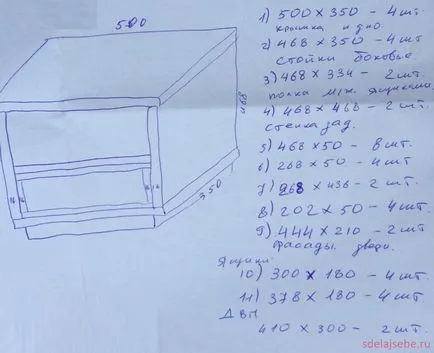 500
468
350
16
16
1) 500 х 350 - 4 шт.
крышка и дно
2) 468 х 350 - 4 шт
стойки боковые
3) 468 х 334 - 2 шт.
полка меж. ящиками
4) 468 х 468 - 2 шт.
стенка зад.
5) 468 х 50 - 8 шт.
6) 268 х 50 - 4 шт
7) 268 х 436 - 2 шт.
8) 202 х 50 - 4 шт.
9) 444 х 210 - 2 шт
фасады двери.
Ящики
10) 300 х 180 - 4 шт.
11) 378 х 180 - 4 шт.
ДВП
410 х 300 - 2 шт.
sdelajsebe.ru